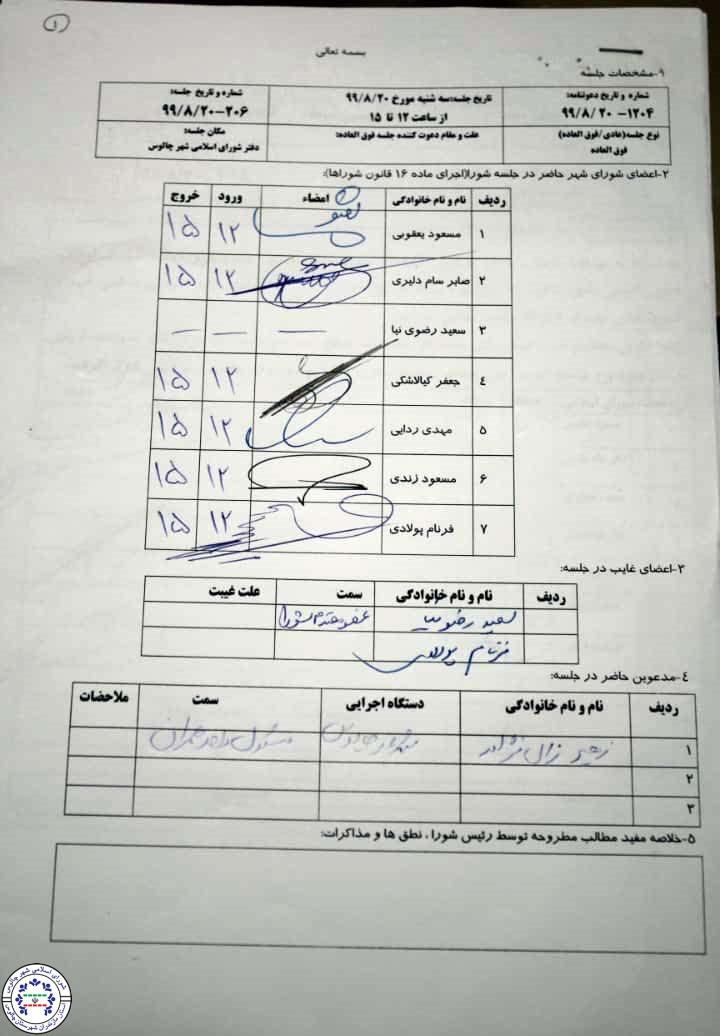 ۱
بسمه تعالی
۱-مشخصات جلسه
شماره و تاریخ دعوتنامه: تاریخ جلسه:سه شنبه مورخ ۹۹/۸/۲۰ شماره و تاریخ جلسه:
۹۹/۸/۲۰ -۱۲۰۴ از ساعت ۱۲ تا ۱۵ ۹۹/۸/۲۰-۲۰۶
نوع جلسه(عادی /فوق العاده) علت و مقام دعوت کننده جلسه فوق العاده: مکان جلسه:
فوق العاده دفتر شورای اسلامی شهر چالوس
۲-اعضای شورای شهر حاضر در جلسه شورا(اجرای ماده ۱۶ قانون شوراها):
ردیف نام و نام خانوادگی امضاء ورود خروج
۱ مسعود یعقوبی ۱۲ ۱۵
۲ صابر سام دلیری ۱۲ ۱۵
۳ سعید رضوی نیا — — —
۴ جعفر کیالاشکی ۱۲ ۱۵
۵ مهدی ردایی ۱۲ ۱۵
۶ مسعود زندی ۱۲ ۱۵
۷ فرنام پولادی ۱۲ ۱۵
۳-اعضای غایب در جلسه:
ردیف نام و نام خانوادگی سمت علت غیبت
سعید رضوی نیا عضو محترم شورا
فرنام پولادی
۴-مدعوین حاضر در جلسه:
ردیف نام و نام خانوادگی دستگاه اجرایی سمت ملاحضات
۱ مسئول واحد عمران
۲
۳
۵-خلاصه مفید مطالب مطروحه توسط رئیس شورا ، نطق ها و مذاکرات:
شورای اسلامی شهر چالوس
استان مازندران شهرستان چالوس